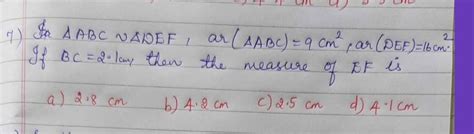 7) In ∆ABC ~ ∆DEF, ar(∆ABC) = 9 cm², ar(DEF)=16cm².
If BC = 2.1cm, then the measure of EF is
a) 2.8 cm b) 4.2 cm c) 2.5 cm d) 4.1 cm